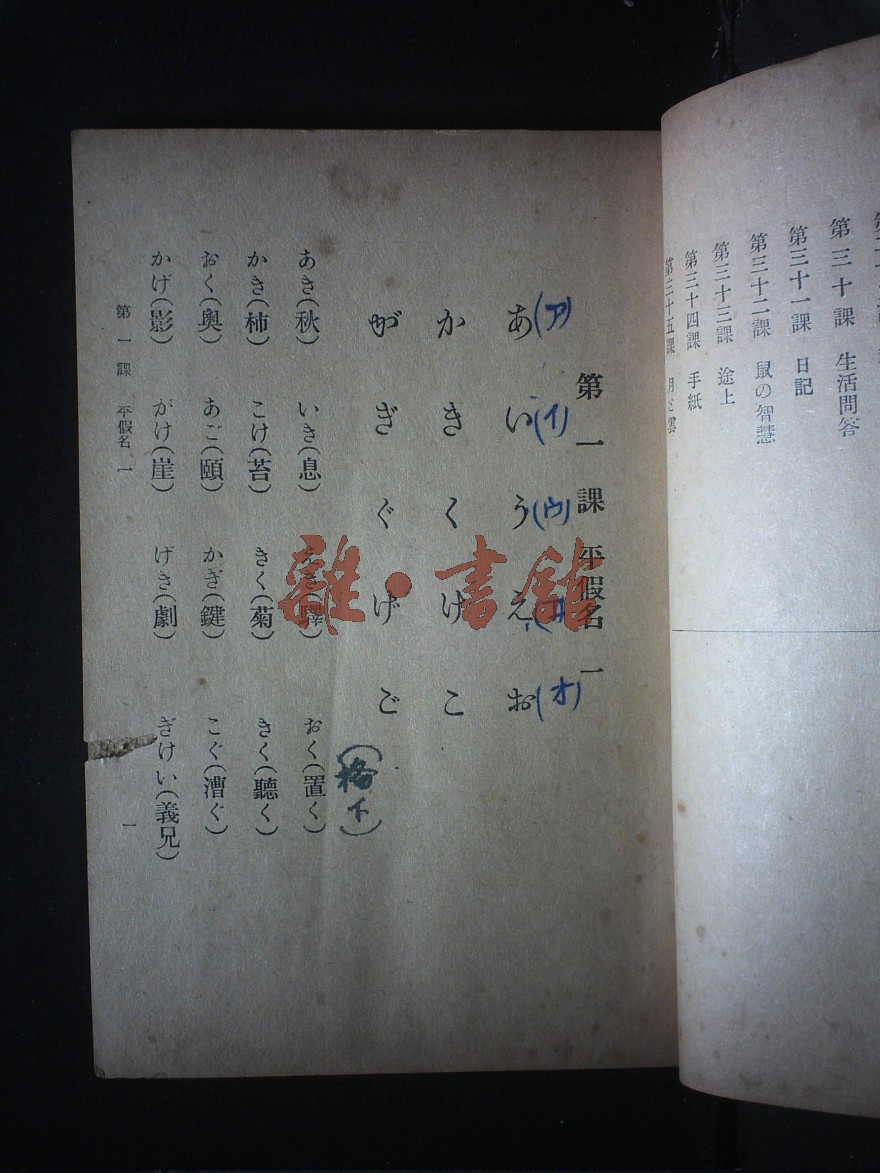 第三十課 生活問答
第三十一課 日記
第三十二課 鼠の智慧
第三十三課 途上
第三十四課 手紙
第三十五課 月と雲
第一課 平假名 一
あ(ア) い(イ) う(ウ) え(エ) お(オ)
か き く け こ
が ぎ ぐ げ ご
(擱下)
あき(秋) いき(息) えき(驛) おく(置く)
かき(柿) こけ(苔) きく(菊) きく(聽く)
おく(奥) あご(頤) かぎ(鍵) こぐ(漕ぐ)
かげ(影) がけ(崖) げき(劇) ぎけい(義兄)
第一課 平假名 一
一